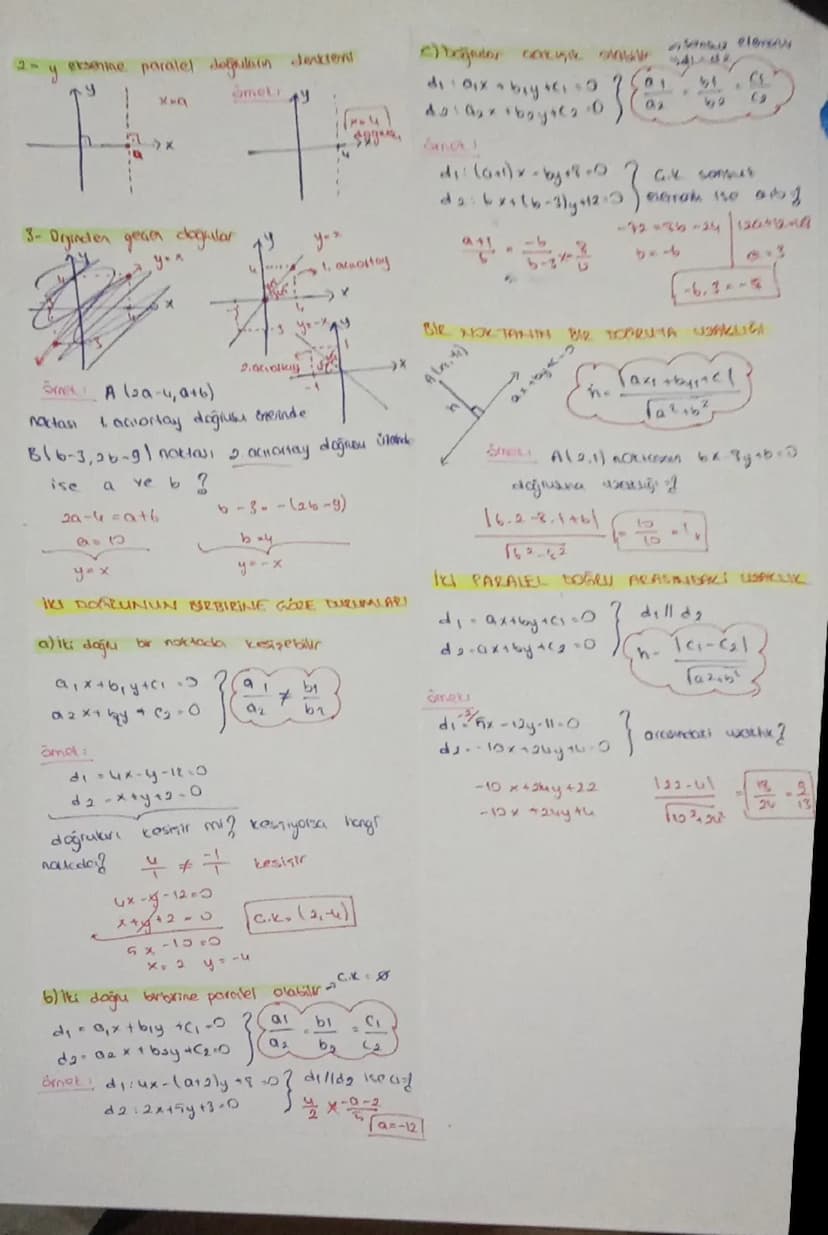 2- y eksenine paralel doğruların denklemi
y
x=a
örnek:
y
x=4 doğrusu
a
x
4
3- Orjinden geçen doğrular
y
y=x
x
y
y=x
1. açıortay
x
y=-x
y
2. açıortay
x
örnek: A(2a-4, a+6)
noktası 1. açıortay doğrusu üzerinde
B(b-3, 2b-9) noktası 2. açıortay doğrusu üzerinde
ise a ve b ?
2a-4=a+6
a=10
y=x
b-3=-(2b-9)
b=4
y=-x
İKİ DOĞRUNUN BİRBİRİNE GÖRE DURUMLARI
a) iki doğru bir noktada kesişebilir
a1x+b1y+c1=0
a2x+b2y+c2=0
a1/a2 ≠ b1/b2
örnek:
d1=4x-y-12=0
d2=x+y+2=0
doğruları kesişir mi? kesişiyorsa hangi
noktada?
4/1 ≠ -1/1 kesişir
4x-y-12=0
x+y+2=0
5x-10=0
x=2 y=-4
Ç.K=(2,-4)
b) iki doğru birbirine paralel olabilir → Ç.K=∅
d1=a1x+b1y+c1=0
d2=a2x+b2y+c2=0
a1/a2 = b1/b2 = c1/c2
örnek: d1:4x-(a+2)y+8=0
d2:2x+5y+3=0
d1//d2 ise a?
4/2 × -a-2/5
a=-12
c) Doğrular çakışık olabilir
→ sonsuz elemanlı
d1=d2
d1: a1x+b1y+c1=0
d2: a2x+b2y+c2=0
a1/a2 = b1/b2 = c1/c2
örnek:
d1:(a+1)x-by+8=0
d2: 6x+(b-3)y+12=0
Ç.K sonsuz
elemanlı ise a·b?
a+1/6 = -b/b-3
b=-6
a=3
-6.3=-18
BİR NOKTANIN BİR DOĞRUYA UZAKLIĞI
A(x1,y1)
h
ax+by+c=0
h= |ax1+by1+c|/√a²+b²
örnek: A(2,1) noktasının 6x-8y+6=0
doğrusuna uzaklığı?
|6.2-8.1+6|/√6²+8²
=10/10=1
İKİ PARALEL DOĞRU ARASINDAKİ UZAKLIK
d1=ax+by+c1=0
d2=ax+by+c2=0
d1//d2
h= |c1-c2|/√a²+b²
örnek:
d1=-2/ 5x-12y-11=0
d2=-10x+24y+4=0
arasındaki uzaklık?
-10x+24y+22
-10x+24y+4
|22-4|/√10²+24²
=18/26=9/13